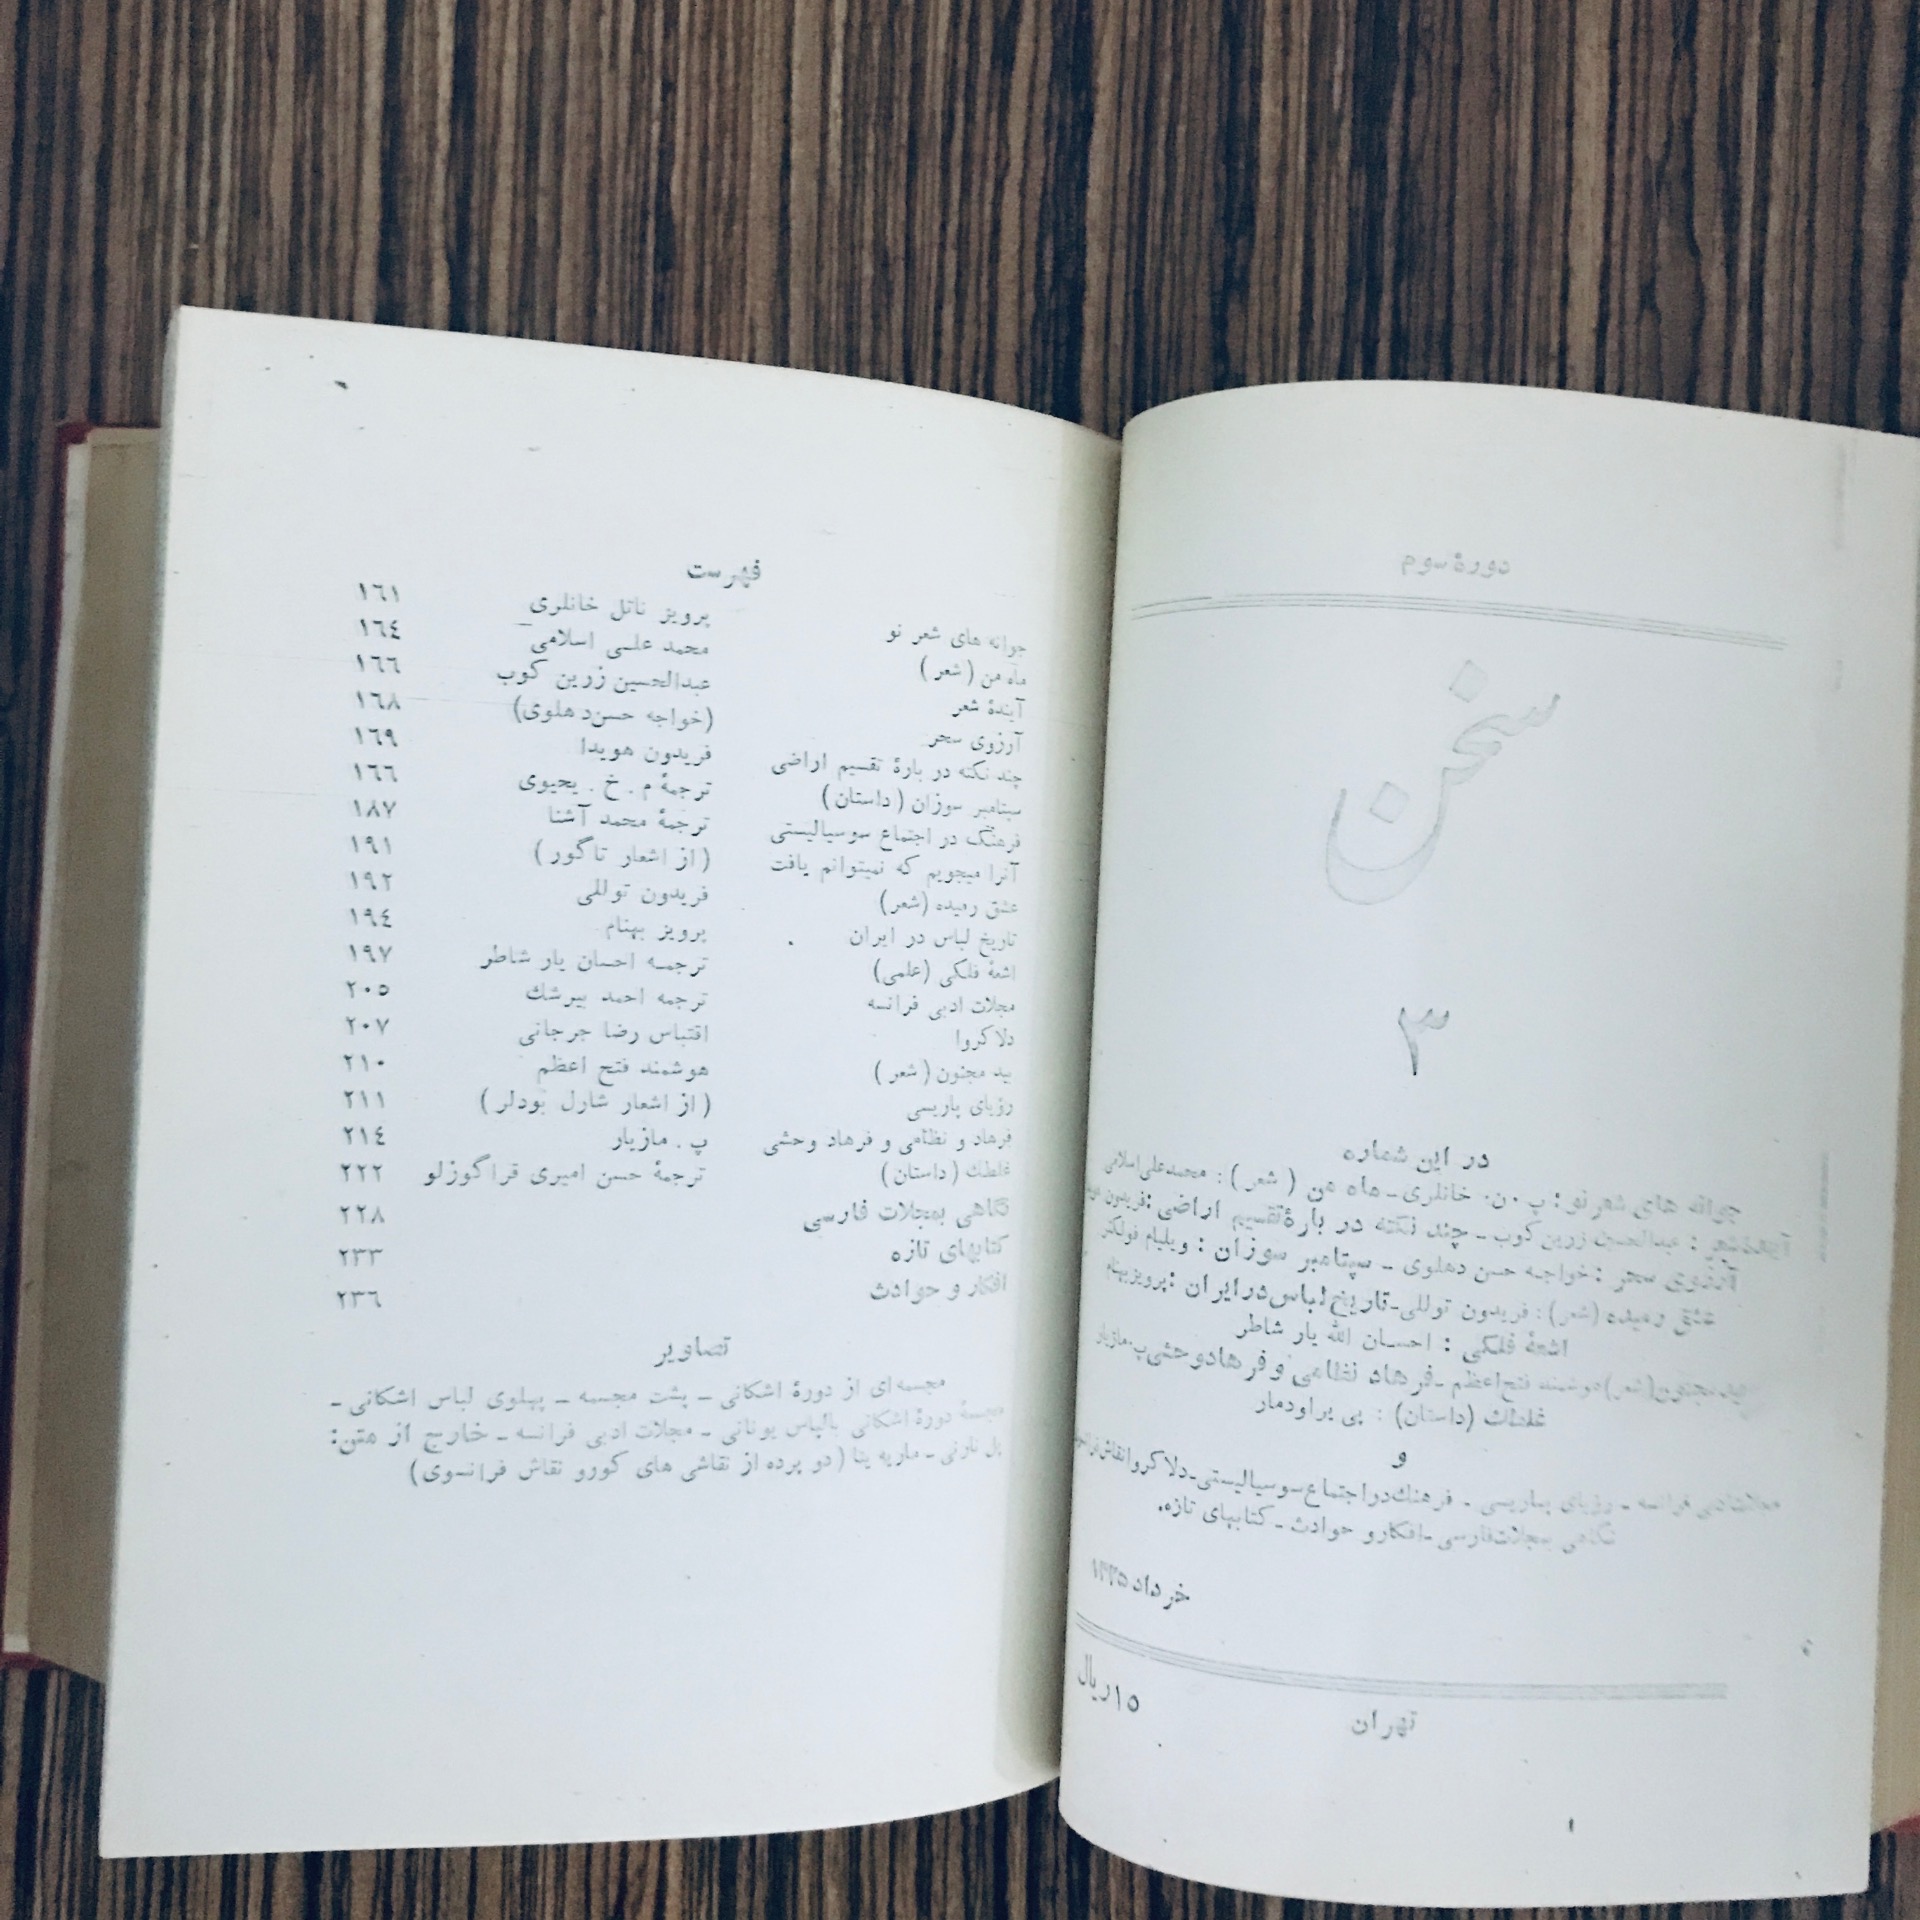 دورهٔ سوم
سخن
۳
در این شماره
جوانه های شعر نو : پ . ن . خانلری ـ ماه من ( شعر ) : محمدعلی اسلامی
آیندهٔ شعر : عبدالحسین زرین کوب ـ چند نکته در بارهٔ تقسیم اراضی : فریدون
آرزوی سحر : خواجه حسن دهلوی ـ سپتامبر سوزان : ویلیام فولکنر
عشق رمیده (شعر) : فریدون توللی ـ تاریخ لباس در ایران : پرویز بهنام
اشعهٔ فلکی : احسان الله یار شاطر
بید مجنون (شعر) هوشمند فتح اعظم ـ فرهاد نظامی و فرهاد وحشی پ . مازیار
غلطك (داستان) : بی یراودمار
و
مجلات ادبی فرانسه ـ رؤیای پاریسی ـ فرهنك در اجتماع سوسیالیستی ـ دلاکروا نقاش
نگاهی بمجلات فارسی ـ افکار و حوادث ـ کتابهای تازه.
خرداد ۱۳۲۵
۱۵ ریال
تهران
فهرست
جوانه های شعر نو پرویز ناتل خانلری ۱۶۱
ماه من (شعر) محمد علی اسلامی ۱۶٤
آیندهٔ شعر عبدالحسین زرین کوب ۱۶۶
آرزوی سحر (خواجه حسن دهلوی) ۱۶۸
چند نکته در بارهٔ تقسیم اراضی فریدون هویدا ۱۶۹
سپتامبر سوزان (داستان) ترجمهٔ م . خ . یحیوی ۱۶۶
فرهنگ در اجتماع سوسیالیستی ترجمهٔ محمد آشنا ۱۸۷
آنرا میجویم که نمیتوانم یافت (از اشعار تاگور) ۱۹۱
عشق رمیده (شعر) فریدون توللی ۱۹۲
تاریخ لباس در ایران پرویز بهنام ۱۹٤
اشعهٔ فلکی (علمی) ترجمه احسان یار شاطر ۱۹۷
مجلات ادبی فرانسه ترجمه احمد بیرشك ۲۰۵
دلاکروا اقتباس رضا جرجانی ۲۰۷
بید مجنون (شعر) هوشمند فتح اعظم ۲۱۰
رؤیای پاریسی (از اشعار شارل بودلر) ۲۱۱
فرهاد و نظامی و فرهاد وحشی پ . مازیار ۲۱٤
غلطك (داستان) ترجمهٔ حسن امیری قراگوزلو ۲۲۲
نگاهی بمجلات فارسی ۲۲۸
کتابهای تازه ۲۳۳
افکار و حوادث ۲۳۶
تصاویر
مجسمه ای از دورهٔ اشکانی ـ پشت مجسمه ـ پهلوی لباس اشکانی ـ
مجسمهٔ دورهٔ اشکانی بالباس یونانی ـ مجلات ادبی فرانسه ـ خارج از متن:
پل نارنی ـ ماریه یتا (دو پرده از نقاشی های کورو نقاش فرانسوی)